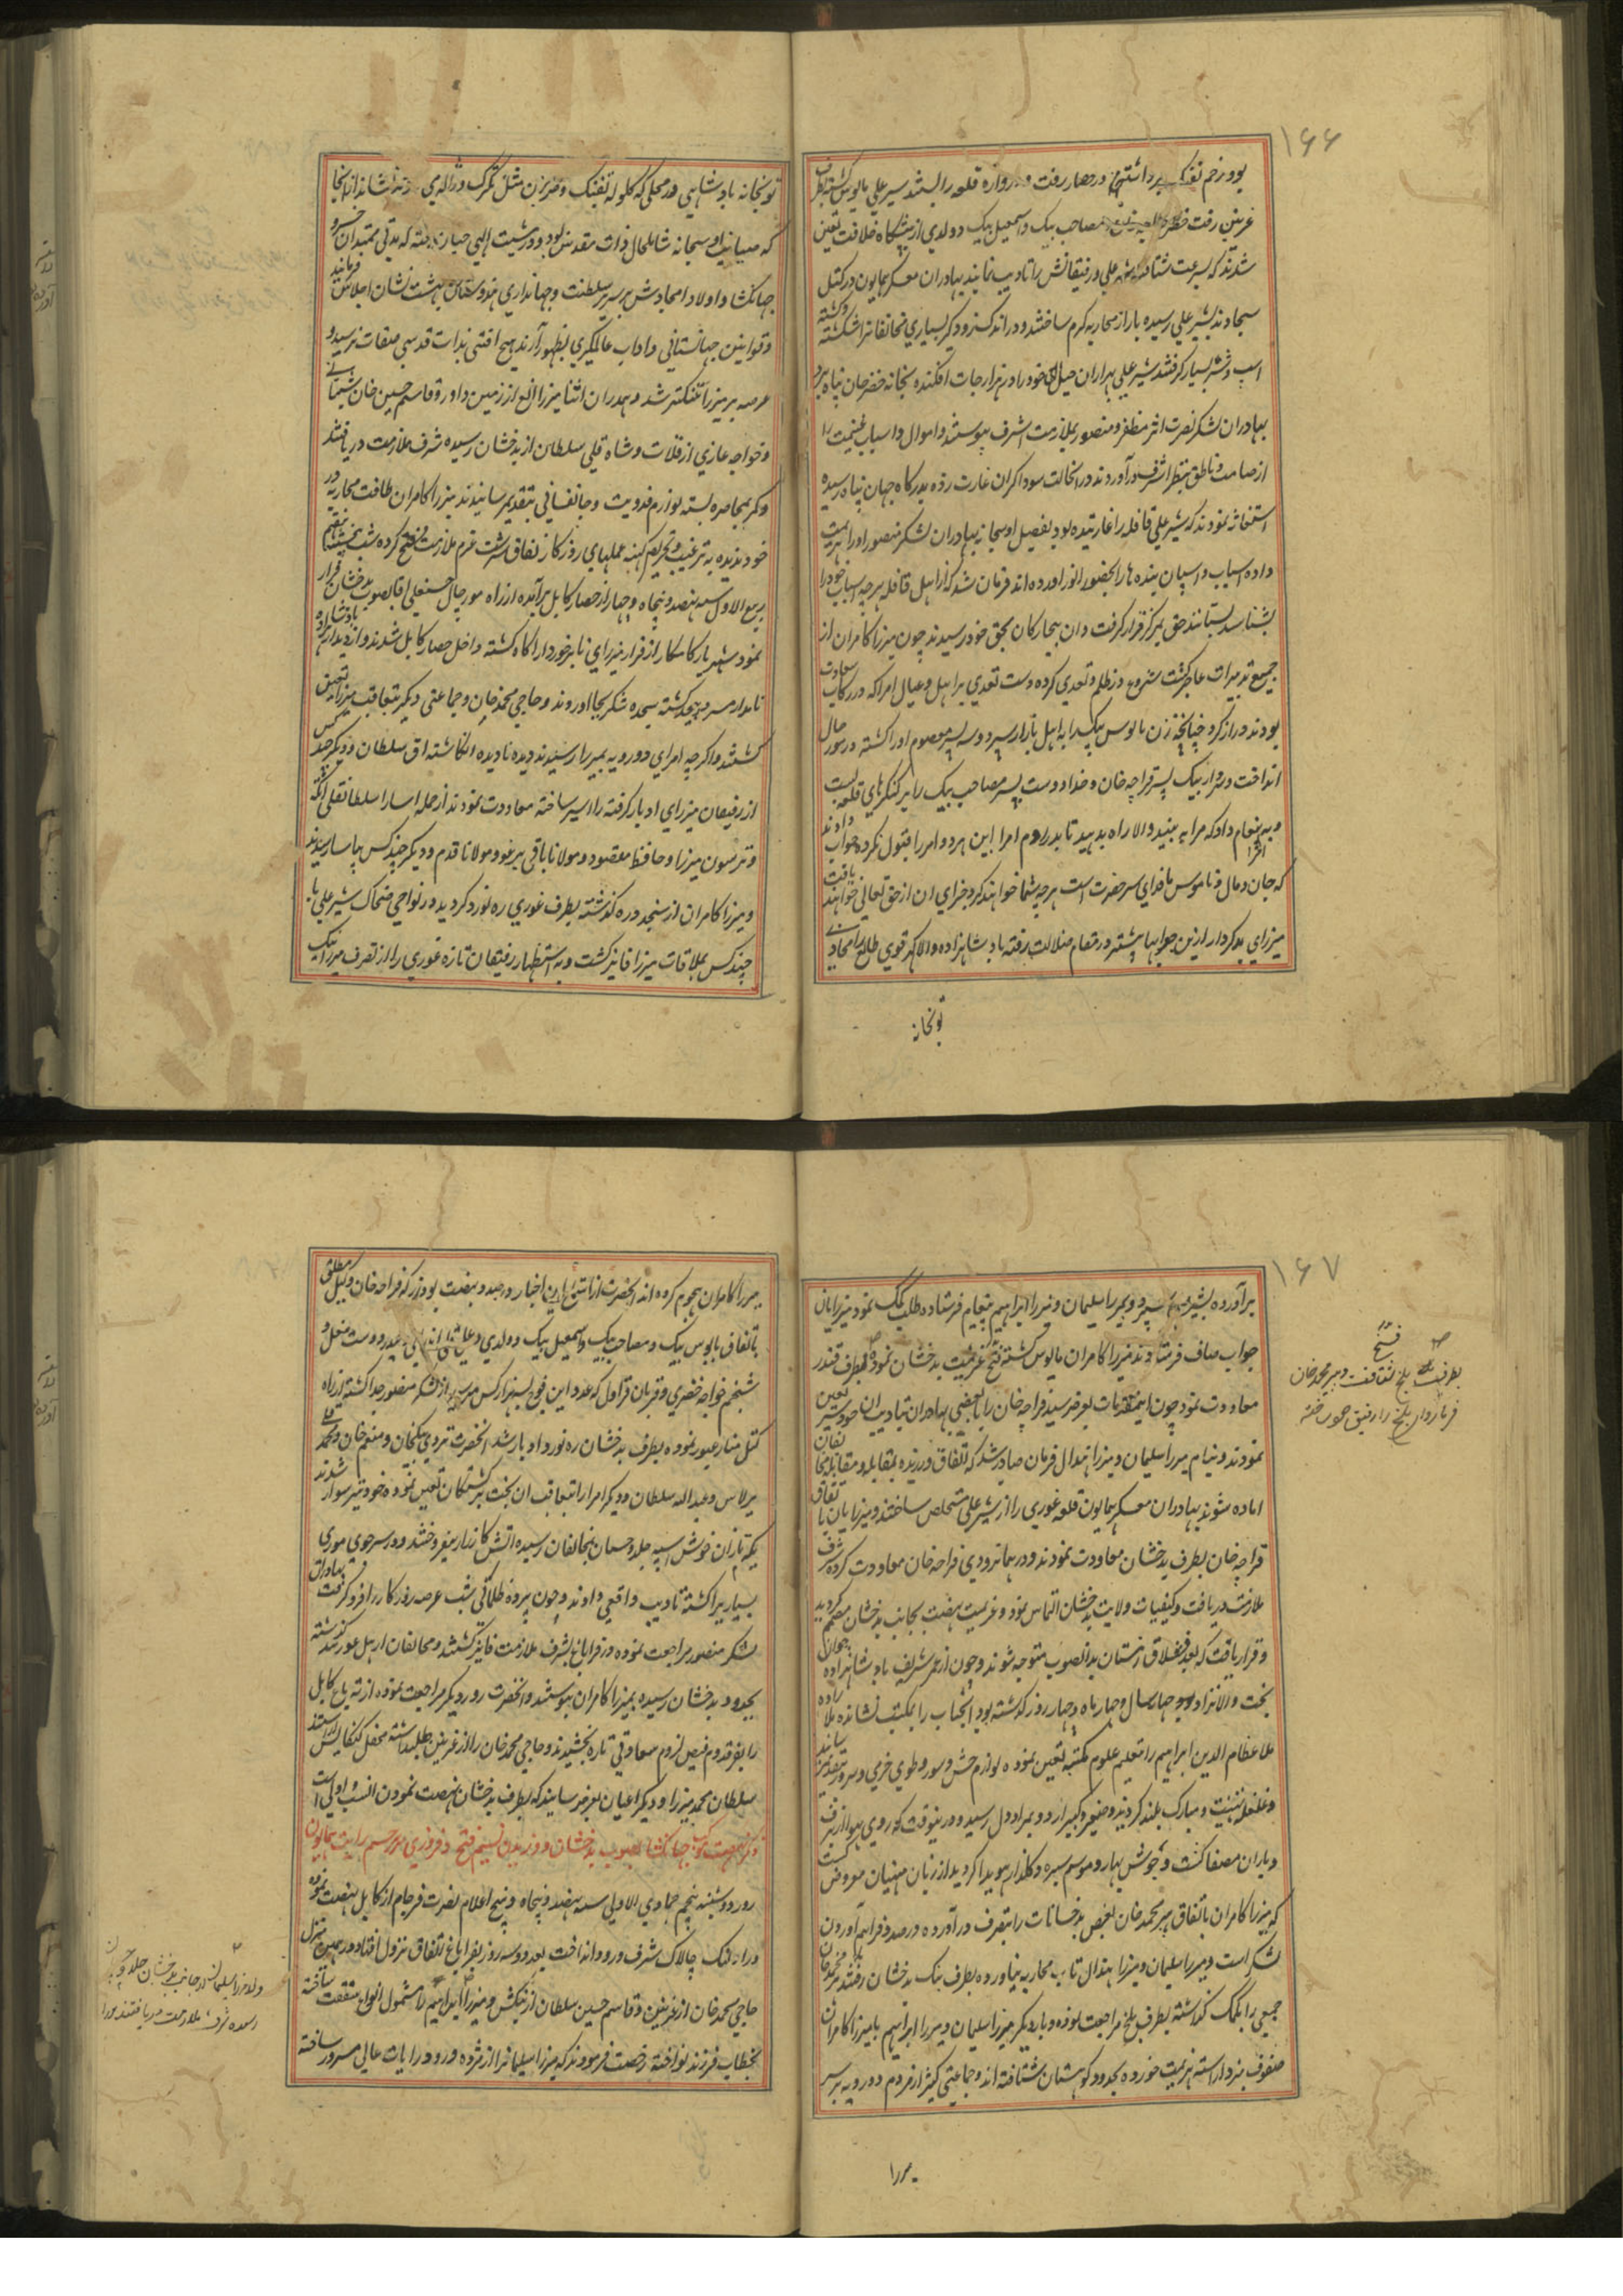 ۱۶۶
بود زخم تفنگ برداشته در حصار رفت و دروازه قلعه را بستند شیر علی مایوس گشته بطرف
غزنین رفت خضر خواجه خان و مصاحب بیک و اسمعیل بیک دولدی از پیشگاه خلافت تعین
شدند که بسرعت شتافته شیر علی و رفیقانش را تادیب نمایند بهادران معسکر همایون در کتل
سجاوند بشیر علی رسیده بازار محاربه گرم ساختند و در اندک زد و گیر بسیاری مخالفانرا شکسته و کشته
اسپ و شتر بسیار گرفتند شیر علی بهزاران حیل خود را در هزارجات افکنده بخانه خضر خان پناه برد
بهادران لشکر نصرت اثر مظفر و منصور بملازمت اشرف پیوستند و اموال و اسباب غنیمت را
از صامت و ناطق بنظر اشرف در آوردند در انحالت سوداگران غارت زده بدرگاه جهان پناه رسیده
استغاثه نمودند که شیر علی قافله را غارتیده بود بفضل او سبحانه بهادران لشکر منصور او را هزیمت
داده اسباب و اسپان بنده ها را بحضور انور اورده اند فرمان شد که از اهل قافله هر چه اسباب خود را
بشناسد بستانند حق بمرکز قرار گرفت و ان بیچارگان بحق خود رسیدند چون میرزا کامران از
جمیع تدبیرات عاجز گشت شروع در ظلم و تعدی کرده دست تعدی بر اهل و عیال امرا که در رکاب سعادت
بودند دراز کرد چنانچه زن بابوس بیک را به اهل بازار سپرد و سه پسر معصوم او را کشته در مورچال
انداخت و سردار بیک پسر قراچه خان و خدا دوست پسر مصاحب بیک را بر کنگرهای قلعه بست
و به امرا پیغام داد که مرا به بینید والا راه بدهید تا بدر روم امرا این هر دو امر را قبول نکرده جواب دادند
که جان و مال و ناموس ما فدای سر حضرت است هر چه شما خواهند کرد جزای ان از حق تعالی خواهند یافت
میرزای بدکردار ازین جوابها پیشتر در مقام ضلالت رفته بادشاهزاده والا گهر قوی طالع را محاذی
توپخانه
توپخانه بادشاهی در محلی که گلوله تفنگ و ضربزن مثل تگرگ و ژاله می آمد نشاندند از انجا
که صیانت او سبحانه شامل حال ذات مقدس بود و در مشیت الهی چنان رفته که مدتی ممتد ان خسرو
جهانکشا و اولاد امجادش بر سریر سلطنت و جهانداری هندوستان بهشت نشان اجلاس فرمایند
و قوانین جهانستانی و اداب عالمگیری بظهور آرند هیچ افتی بذات قدسی صفات نرسید و
عرصه بر میرزا تنگتر شد و همدران اثنا میرزا الغ از زمین داور و قاسم حسین خان شیبانی
و خواجه غازی از قلات و شاه قلی سلطان از بدخشان رسیده شرف ملازمت دریافتند
و کمر بمحاصره بسته لوازم فدویت و جانفشانی بتقدیم رسانیدند میرزا کامران طاقت محاربه در
خود ندیده به ترغیب و تحریص کهنه عملهای روزگار نفاق سرشت عزم ملازمت فسخ کرده شب پنجشنبه هفتم
ربیع الاول سنه نهصد و پنجاه و چهار از حصار کابل برآمده از راه مورچال حسنقلی اقا بصوب بدخشان فرار
نمود شهریار کامکار از فرار میرزای نابرخوردار اگاه گشته داخل حصار کابل شدند و از دیدار بادشاهزاده
نامدار مسرور و مبتهج گشته سجده شکر بجا اوردند و حاجی محمد خان و جماعتی دیگر بتعاقب میرزا تعین
گشتند و اگر چه امرای دورویه بمیرزا رسیدند دیده نادیده انگاشته اق سلطان و دیگر چند کس
از رفیقان میرزای ادبار گرفته را اسیر ساخته معاودت نمودند از جمله اسارا سلطانقلی اتکه
و ترسون میرزا و حافظ مقصود و مولانا باقی یرغو و مولانا قدم و دیگر چند کس بیاسا رسیدند
و میرزا کامران از سنجد دره گذشته بطرف غوری ره نورد گردید در نواحی ضحاک شیر علی با
چند کس بملاقات میرزا فایز گشت و به استظهار رفیقان تازه غوری را از تصرف میرزا بیک
۱۶۷
برآورده بشیر علی سپرد و بمیرزا سلیمان و میرزا ابراهیم پیغام فرستاده طلب کمک نمود میرزایان
جواب صاف فرستادند میرزا کامران مایوس گشته فسخ عزیمت بدخشان نموده بطرف قندز
معاودت نمود چون این مقدمات بعرض رسید قراچه خان را با بعضی بهادران بتادیب ان خودسر تعین
نمودند و بنام میرزا سلیمان و میرزا هندال فرمان صادر شد که اتفاق ورزیده بمقابله و مقاتله مخالفان
اماده شوند بهادران معسکر همایون قلعه غوری را از شیر علی مستخلص ساختند و میرزایان با تفاق
قراچه خان بطرف بدخشان معاودت نمودند و در همانزودی قراچه خان معاودت کرده شرف
ملازمت دریافت و کیفیات ولایت بدخشان التماس نمود و عزیمت نهضت بجانب بدخشان مصمم گردید
و قرار یافت که بعد قشلاق زمستان بدانصوب متوجه شوند و چون از عمر شریف بادشاهزاده جوان
بخت والا نژاد چهار سال و چهار ماه و چهار روز گذشته بود انجناب را بمکتب نشانده ملا زاده
ملا عظام الدین ابراهیم را بتعلیم علوم مکتبیه تعین نموده لوازم جشن و سور و طوی خرمی و سرور بتقدیم رسانید
و غلغله تهنیت و مبارک بلند گردید و صغیر و کبیر اردو بمراد دل رسید و درینوقت که روی هوا از برف
و باران مصفا گشت و جوش بهار و موسم سبزه و گلزار هویدا گردید از زبان منهیان معروض گشت
که میرزا کامران باتفاق پیر محمد خان بعض بدخشانات را بتصرف درآورده و درصدد فراهم آوردن
لشکر است و میرزا سلیمان و میرزا هندال تاب محاربه نیاورده بطرف تنگ بدخشان رفتند پیر محمد خان
جمعی را بکمک گذاشته بطرف بلخ مراجعت نموده و بار دیگر میرزا سلیمان و میرزا ابراهیم با میرزا کامران
صفوف نبرد آراسته هزیمت خورده بحدود کوهستان شتافته اند و جماعتی کثیر از مردم دورویه بر سر
میرزا
بطرف بلخ شتافت و پیر محمد خان
فرمانروای بلخ را رفیق خود ساخته
میرزا کامران هجوم کرده اند انحضرت از استماع این اخبار درصدد نهضت بودند که قراچه خان وکیل مطلق
باتفاق بابوس بیک و مصاحب بیک و اسمعیل بیک دولدی و حیدر دوست مغل و
شیخم خواجه خضری و قربان قراول که عدد این فوج بسه هزار کس میرسید از لشکر منصور جدا گشته از راه
کتل منار عبور نموده بطرف بدخشان ره نورد ادبار شد انحضرت تردی بیکخان و منعم خان و محمد قلی
برلاس و عبد الله سلطان و دیگر امرا را بتعاقب ان بخت برگشتگان تعین نموده خود نیز سوار شدند
یکه تازان خوش اسپه جلد و چسپان بمخالفان رسیده اتش کارزار بیفروختند و در سر جوی موری
بسیاریرا کشته تادیب واقعی دادند و چون پرده ظلمانی شب عرصه روزگار را فرو گرفت بهادران
لشکر منصور مراجعت نموده در قراباغ بشرف ملازمت فایز گشتند و مخالفان از پل غوربند گذشته
بحدود بدخشان رسیده بمیرزا کامران پیوستند و انحضرت روز دیگر مراجعت نموده ارته باغ کابل
را بفر قدوم فیض لزوم سعادتی تازه بخشیدند و حاجی محمد خان را از غزنین طلب داشته محفل کنکایش اراستند
سلطان محمد میرزا و دیگر اعیان بعرض رسانیدند که بطرف بدخشان نهضت نمودن انسب و اولی است
ذکر نهضت موکب جهانکشا بصوب بدخشان و وزیدن نسیم فتح و فیروزی بر پرچم رایت همایون
روز دوشنبه پنجم جمادی الاولی سنه نهصد و پنجاه و پنج اعلام نصرت فرجام از کابل نهضت نموده
در النگ چالاک شرف ورود انداخت بعد دو سه روز بقراباغ اتفاق نزول افتاد و در همین منزل
حاجی محمد خان از غزنین و قاسم حسین سلطان از بنگش و میرزا ابراهیم را مشمول انواع شفقت ساخته
بخطاب فرزند نواخته رخصت فرمودند که میرزا سلیمانرا از مژده ورود رایات عالی مسرور ساخته
ولد میرزا سلیمان از جانب بدخشان جلد
رسیده شرف ملازمت دریافتند